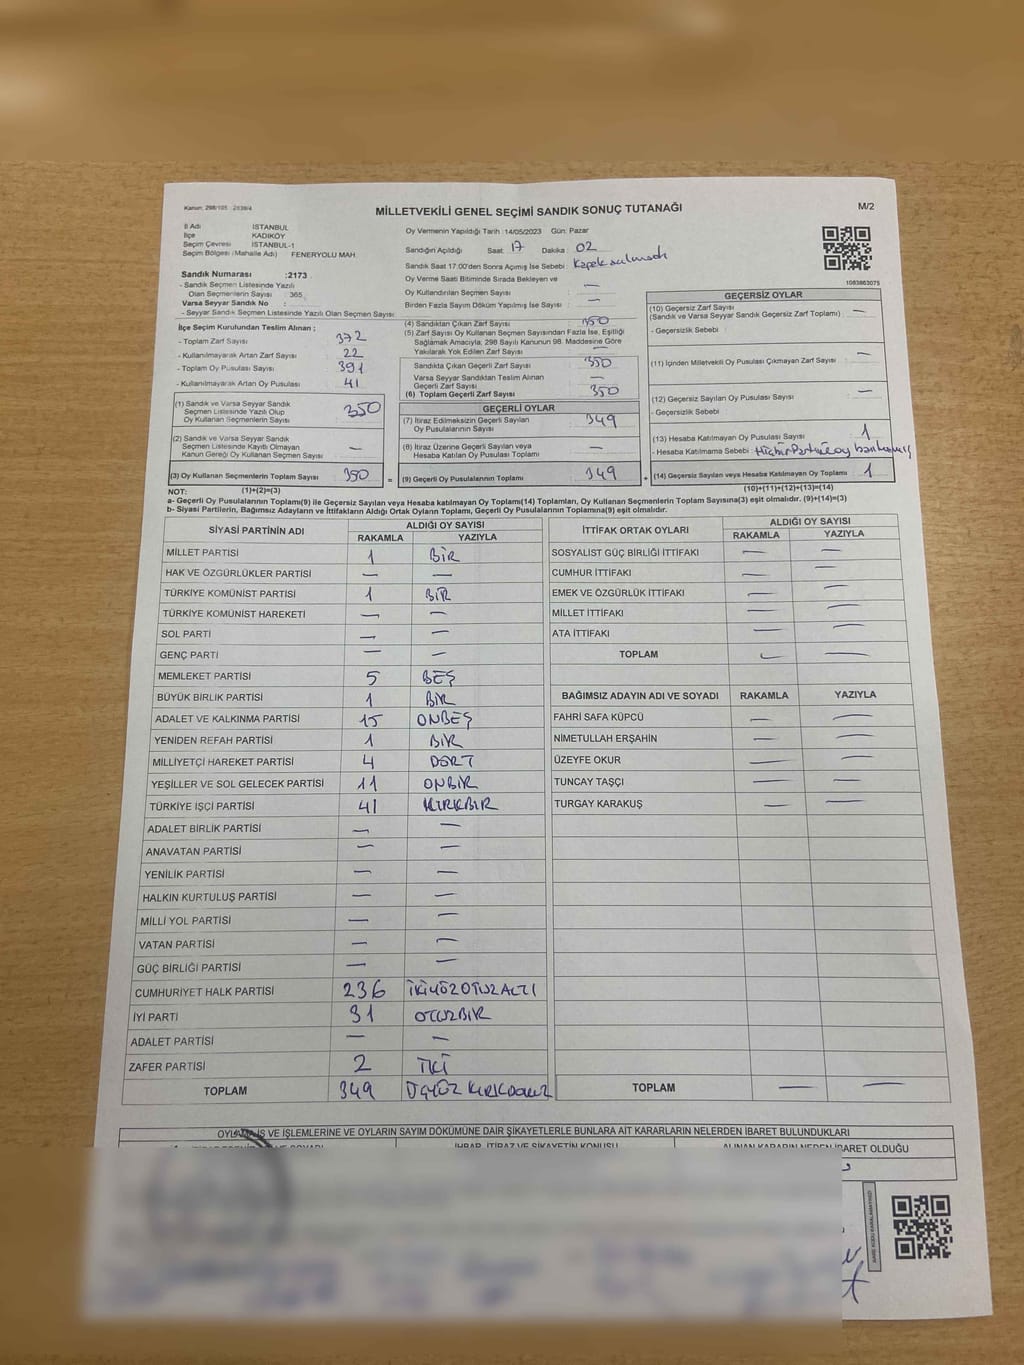 Kanun: 298/105 - 2839/4
MİLLETVEKİLİ GENEL SEÇİMİ SANDIK SONUÇ TUTANAĞI
M/2
İl Adı İSTANBUL
İlçe KADIKÖY
Seçim Çevresi İSTANBUL-1
Seçim Bölgesi (Mahalle Adı) FENERYOLU MAH.
Sandık Numarası :2173
- Sandık Seçmen Listesinde Yazılı
Olan Seçmenlerin Sayısı : 365
Varsa Seyyar Sandık No :
- Seyyar Sandık Seçmen Listesinde Yazılı Olan Seçmen Sayısı :
İlçe Seçim Kurulundan Teslim Alınan ;
- Toplam Zarf Sayısı 372
- Kullanılmayarak Artan Zarf Sayısı 22
- Toplam Oy Pusulası Sayısı 391
- Kullanılmayarak Artan Oy Pusulası 41
(1) Sandık ve Varsa Seyyar Sandık
Seçmen Listesinde Yazılı Olup
Oy Kullanan Seçmenlerin Sayısı 350
(2) Sandık ve Varsa Seyyar Sandık
Seçmen Listesinde Kayıtlı Olmayan
Kanun Gereği Oy Kullanan Seçmen Sayısı —
(3) Oy Kullanan Seçmenlerin Toplam Sayısı 350
(1)+(2)=(3)
Oy Vermenin Yapıldığı Tarih : 14/05/2023 Gün: Pazar
Sandığın Açıldığı Saat: 17 Dakika : 02
Sandık Saat 17:00'den Sonra Açımış İse Sebebi :
Oy Verme Saati Bitiminde Sırada Bekleyen ve
Oy Kullandırılan Seçmen Sayısı —
Birden Fazla Sayım Döküm Yapılmış İse Sayısı : —
(4) Sandıktan Çıkan Zarf Sayısı 350
(5) Zarf Sayısı Oy Kullanan Seçmen Sayısından Fazla İse, Eşitliği
Sağlamak Amacıyla, 298 Sayılı Kanunun 98. Maddesine Göre
Yakılarak Yok Edilen Zarf Sayısı —
Sandıkta Çıkan Geçerli Zarf Sayısı 350
Varsa Seyyar Sandıktan Teslim Alınan
Geçerli Zarf Sayısı —
(6) Toplam Geçerli Zarf Sayısı 350
GEÇERLİ OYLAR
(7) İtiraz Edilmeksizin Geçerli Sayılan
Oy Pusulalarının Sayısı 349
(8) İtiraz Üzerine Geçerli Sayılan veya
Hesaba Katılan Oy Pusulası Toplamı —
= (9) Geçerli Oy Pusulalarının Toplamı 349 +
1083863075
GEÇERSİZ OYLAR
(10) Geçersiz Zarf Sayısı
(Sandık ve Varsa Seyyar Sandık Geçersiz Zarf Toplamı) : —
- Geçersizlik Sebebi :
(11) İçinden Milletvekili Oy Pusulası Çıkmayan Zarf Sayısı —
(12) Geçersiz Sayılan Oy Pusulası Sayısı —
- Geçersizlik Sebebi
(13) Hesaba Katılmayan Oy Pusulası Sayısı 1
- Hesaba Katılmama Sebebi :
(14) Geçersiz Sayılan veya Hesaba Katılmayan Oy Toplamı 1
(10)+(11)+(12)+(13)=(14)
NOT:
a- Geçerli Oy Pusulalarının Toplamı(9) ile Geçersiz Sayılan veya Hesaba katılmayan Oy Toplamı(14) Toplamları, Oy Kullanan Seçmenlerin Toplam Sayısına(3) eşit olmalıdır. (9)+(14)=(3)
b- Siyasi Partilerin, Bağımsız Adayların ve İttifakların Aldığı Ortak Oyların Toplamı, Geçerli Oy Pusulalarının Toplamına(9) eşit olmalıdır.
SİYASİ PARTİNİN ADI ALDIĞI OY SAYISI
RAKAMLA YAZIYLA
MİLLET PARTİSİ 1 BİR
HAK VE ÖZGÜRLÜKLER PARTİSİ — —
TÜRKİYE KOMÜNİST PARTİSİ 1 BİR
TÜRKİYE KOMÜNİST HAREKETİ — —
SOL PARTİ — —
GENÇ PARTİ — —
MEMLEKET PARTİSİ 5 BEŞ
BÜYÜK BİRLİK PARTİSİ 1 BİR
ADALET VE KALKINMA PARTİSİ 15 ONBEŞ
YENİDEN REFAH PARTİSİ 1 BİR
MİLLİYETÇİ HAREKET PARTİSİ 4 DÖRT
YEŞİLLER VE SOL GELECEK PARTİSİ 11 ONBİR
TÜRKİYE İŞÇİ PARTİSİ 41 KIRKBİR
ADALET BİRLİK PARTİSİ — —
ANAVATAN PARTİSİ — —
YENİLİK PARTİSİ — —
HALKIN KURTULUŞ PARTİSİ — —
MİLLİ YOL PARTİSİ — —
VATAN PARTİSİ — —
GÜÇ BİRLİĞİ PARTİSİ — —
CUMHURİYET HALK PARTİSİ 236 İKİYÜZOTUZALTI
İYİ PARTİ 31 OTUZBİR
ADALET PARTİSİ — —
ZAFER PARTİSİ 2 İKİ
TOPLAM 349 ÜÇYÜZ KIRKDOKUZ
İTTİFAK ORTAK OYLARI ALDIĞI OY SAYISI
RAKAMLA YAZIYLA
SOSYALİST GÜÇ BİRLİĞİ İTTİFAKI — —
CUMHUR İTTİFAKI — —
EMEK VE ÖZGÜRLÜK İTTİFAKI — —
MİLLET İTTİFAKI — —
ATA İTTİFAKI — —
TOPLAM — —
BAĞIMSIZ ADAYIN ADI VE SOYADI RAKAMLA YAZIYLA
FAHRİ SAFA KÜPCÜ — —
NİMETULLAH ERŞAHİN — —
ÜZEYFE OKUR — —
TUNCAY TAŞÇI — —
TURGAY KARAKUŞ — —
TOPLAM — —
İŞ VE İŞLEMLERİNE VE OYLARIN SAYIM DÖKÜMÜNE DAİR ŞİKAYETLERLE BUNLARA AİT KARARLARIN NELERDEN İBARET BULUNDUKLARI
İHBAR, İTİRAZ VE ŞİKAYETİN KONUSU
ALINAN KARARIN NEDEN İBARET OLDUĞU